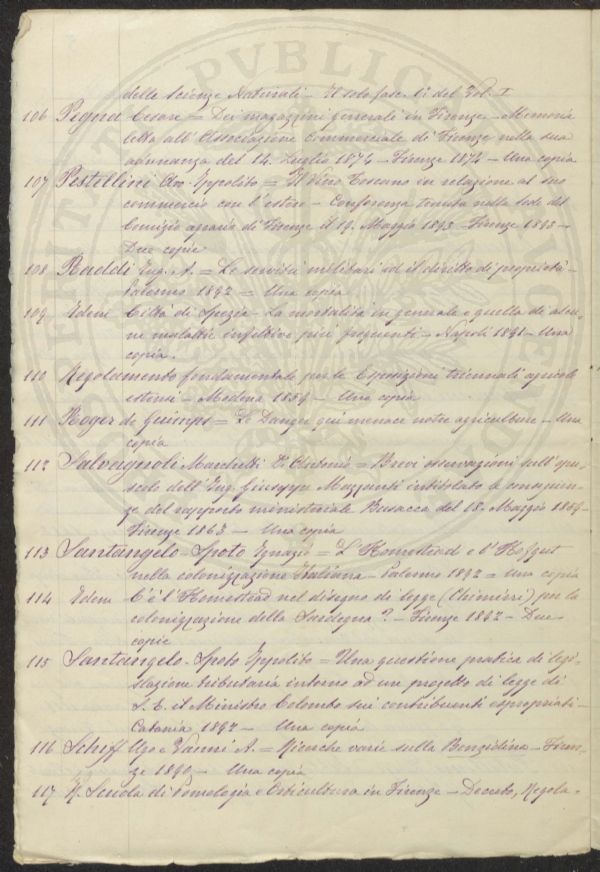 delle Scienze Naturali - Il solo fasc. 1° del Vol. I
106 Pegna Cesare = Dei magazzini generali in Firenze - Memoria
letta all'Associazione Commerciale di Firenze nella sua
adunanza del 14 Luglio 1874 - Firenze 1874 - Una copia
107 Pestellini Ippolito = Il Vino Toscano in relazione al suo
commercio con l'estero - Conferenza tenuta nella sede del
Comizio agrario di Firenze il 19 Maggio 1893 - Firenze 1893 -
Due copie
108 Raddi Ing. A. = Le servitù militari ed il diritto di proprietà -
Palermo 1892 = Una copia
109 Edem Città di Spezia - La mortalità in generale e quella di alcu-
ne malattie infettive più frequenti - Napoli 1891 - Una
copia.
110 Regolamento fondamentale per le Esposizioni triennali agricole
estensi - Modena 1854 - Una copia
111 Roger de Guimps = Le Danger qui menace notre agriculture - Una
copia
112 Salvagnoli Marchetti D. Antonio = Brevi osservazioni sull'opu-
scolo dell'Ing. Giuseppe Mazzanti intitolato le conseguen-
ze del rapporto ministeriale Busacca del 18 Maggio
Firenze 1863 - Una copia
113 Santangelo Spoto Ignazio = L'Homestead e l'Hofgut
nella colonizzazione Italiana - Palermo 1892 = Una copia
114 Edem C'è l'Homestead nel disegno di legge (Chimirri) per la
colonizzazione della Sardegna? - Firenze - Due
copie
115 Santangelo Spoto Ippolito = Una questione pratica di legi-
slazione tributaria intorno ad un progetto di legge di
S. E. il Ministro Colombo sui contribuenti espropriati -
Catania 1892 - Una copia
116 Schiff Ugo e Vanni A. = Ricerche varie sulla Benzidina - Firen-
ze 1890 - Una copia
117 R. Scuola di Pomologia e Orticultura in Firenze - Decreto, Regola-